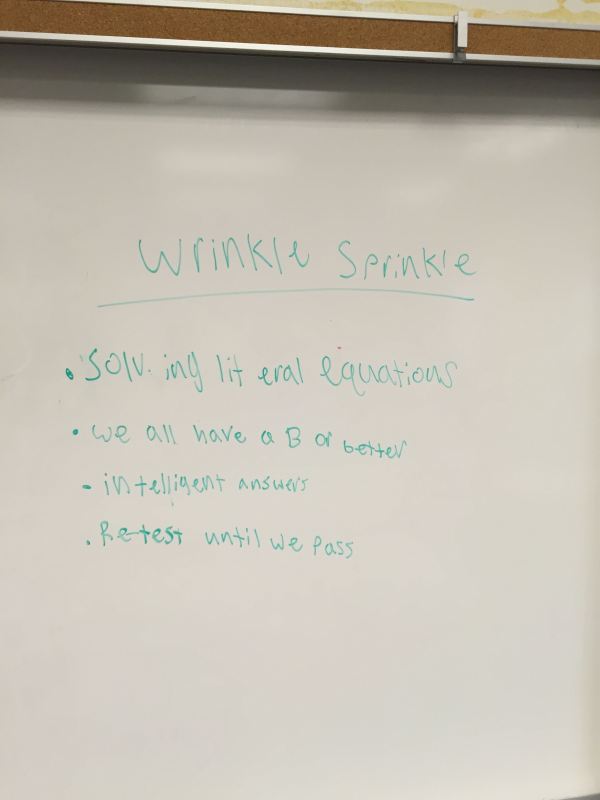 Wrinkle Sprinkle
• Solv. ing lit eral equations
• we all have a B or better
- intelligent answers
. Retest until we pass